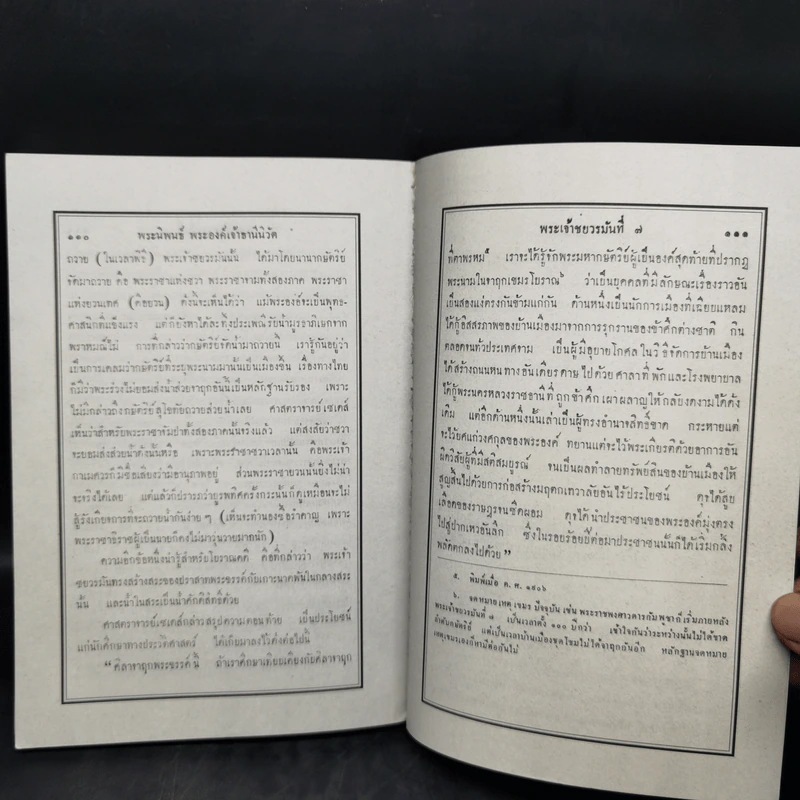 ๑๑๐ พระนิพนธ์ พระองค์เจ้าธานีนิวัต
ถวาย (ในเวลาพิธี) พระเจ้าชยวรมันนั้น ได้มาโดยนานากษัตริย์
จัดมาถวาย คือ พระราชาแห่งชวา พระราชาจามทั้งสองภาค พระราชา
แห่งยวนเทศ (คือยวน) ดังนี้จะเห็นได้ว่า แม้พระองค์จะเป็นพุทธ-
ศาสนิกที่แข็งแรง แต่ก็ยังหาได้ละทิ้งประเพณีรับน้ำมุรธาภิเษกจาก
พราหมณ์ไม่ การที่กล่าวว่ากษัตริย์จัดน้ำมาถวายนี้ เรารู้กันอยู่ว่า
เป็นการเคลมว่ากษัตริย์ที่ระบุพระนามมานั้นเป็นเมืองขึ้น เรื่องทางไทย
ก็มีว่าพระร่วงไม่ยอมส่งน้ำ จารึกอันนี้เป็นหลักฐานรับรอง เพราะ
ไม่มีกล่าวถึงกษัตริย์สุโขทัยถวายส่วยน้ำเลย ศาสตราจารย์เซเดส์
เห็นว่าสำหรับพระราชาจัมปาทั้งสองภาคนั้นจริงแล้ว แต่สงสัยว่าชวา
จะยอมส่งส่วยน้ำดังนั้นหรือ เพราะพระราชาชวาเวลานั้น คือพระเจ้า
กาเมศวรก็มีชื่อเสียงว่ามีอานุภาพอยู่ ส่วนพระราชายวนนั้นยิ่งไม่น่า
จะจริงได้เลย
สู้รังเกียจการที่จะถวายน้ำกันง่าย ๆ (เห็นจะทำนองซื้อรำคาญ เพราะ
ราชาธิราชผู้เป็นนายก็คงไม่มาวุ่นวายมากนัก)
ความอีกข้อหนึ่งน่ารู้สำหรับโบราณคดี คือที่กล่าวว่า พระเจ้า
ชยวรมันทรงสร้างสระของปราสาทพระขรรค์กับเกาะนาคพันในกลางสระ
นั้น และน้ำในสระเป็นน้ำศักดิ์สิทธิ์ด้วย
ศาสตราจารย์เซเดส์กล่าวสรุปความตอนท้าย เป็นประโยชน์
แก่นักศึกษาทางประวัติศาสตร์ ได้เก็บมาลงไว้ดังต่อไปนี้
“ศิลาจารึกพระขรรค์นี้ ถ้าเราศึกษาเทียบเคียงกับศิลาจารึก
พระเจ้าชยวรมันที่ ๗ ๑๑๑
ที่ตาพรหม๕ เราจะได้รู้จักพระมหากษัตริย์ผู้เป็นองค์สุดท้ายที่ปรากฏ
พระนามในจารึกเขมรโบราณ๖ ว่าเป็นยุคคลที่มีลักษณะเรื่องราวอัน
เป็นสองแง่ตรงกันข้ามแก่กัน ด้านหนึ่งเป็นนักการเมืองที่เฉียบแหลม
ได้กู้อิสสรภาพของบ้านเมืองมาจากการรุกรานของข้าศึกต่างชาติ กิน
ตลอดจนทั่วประเทศจาม เป็นผู้มีอุบายโกศลในวิธีจัดการบ้านเมือง
ได้สร้างถนนหนทางอันเดียรดาษ ไปด้วยศาลาที่พักและโรงพยาบาล
ได้กู้พระนครหลวงราชธานีที่ถูกข้าศึกเผาผลาญให้กลับงดงามได้ดัง
เดิม แต่อีกด้านหนึ่งนั้นเล่าเป็นผู้ทรงอำนาจสิทธิ์ขาด กระหายแต่
จะไว้ยศแก่วงศกุลของพระองค์ ทยานแต่จะไว้พระเกียรติด้วยอาการอัน
ผิดวิสัยผู้ที่มีสติสมบูรณ์ จนเป็นผลทำลายทรัพย์สินของบ้านเมืองให้
สูญสิ้นไปด้วยการก่อสร้างมฤดกเทวาลัยอันไร้ประโยชน์ ดุจได้สูบ
เลือดของราษฎรจนซีดผอม ดุจได้นำประชาชนของพระองค์มุ่งตรง
ไปสู่ปากเหวอันลึก ซึ่งในรอยร้อยปีต่อมาประชาชนนั้นก็ได้เริ่มกลิ้ง
พลัดตกลงไปด้วย”
๕. พิมพ์เมื่อ ค.ศ. ๑๙๐๖
๖. จดหมายเหตุเขมรปัจจุบัน เช่น พระราชพงศาวดารกัมพูชา ก็เริ่มภายหลัง
พระเจ้าชยวรมันที่ ๗ เป็นเวลาตั้ง ๑๐๐ ปีกว่า เข้าใจกันว่าระหว่างนั้นไม่ได้ขาด
ลำดับกษัตริย์ แต่เป็นเวลาบ้านเมืองซุดโซมไม่ได้จารึกกันอีก หลักฐานจดหมาย
เหตุเขมรเองก็หามีต่อกันไม่